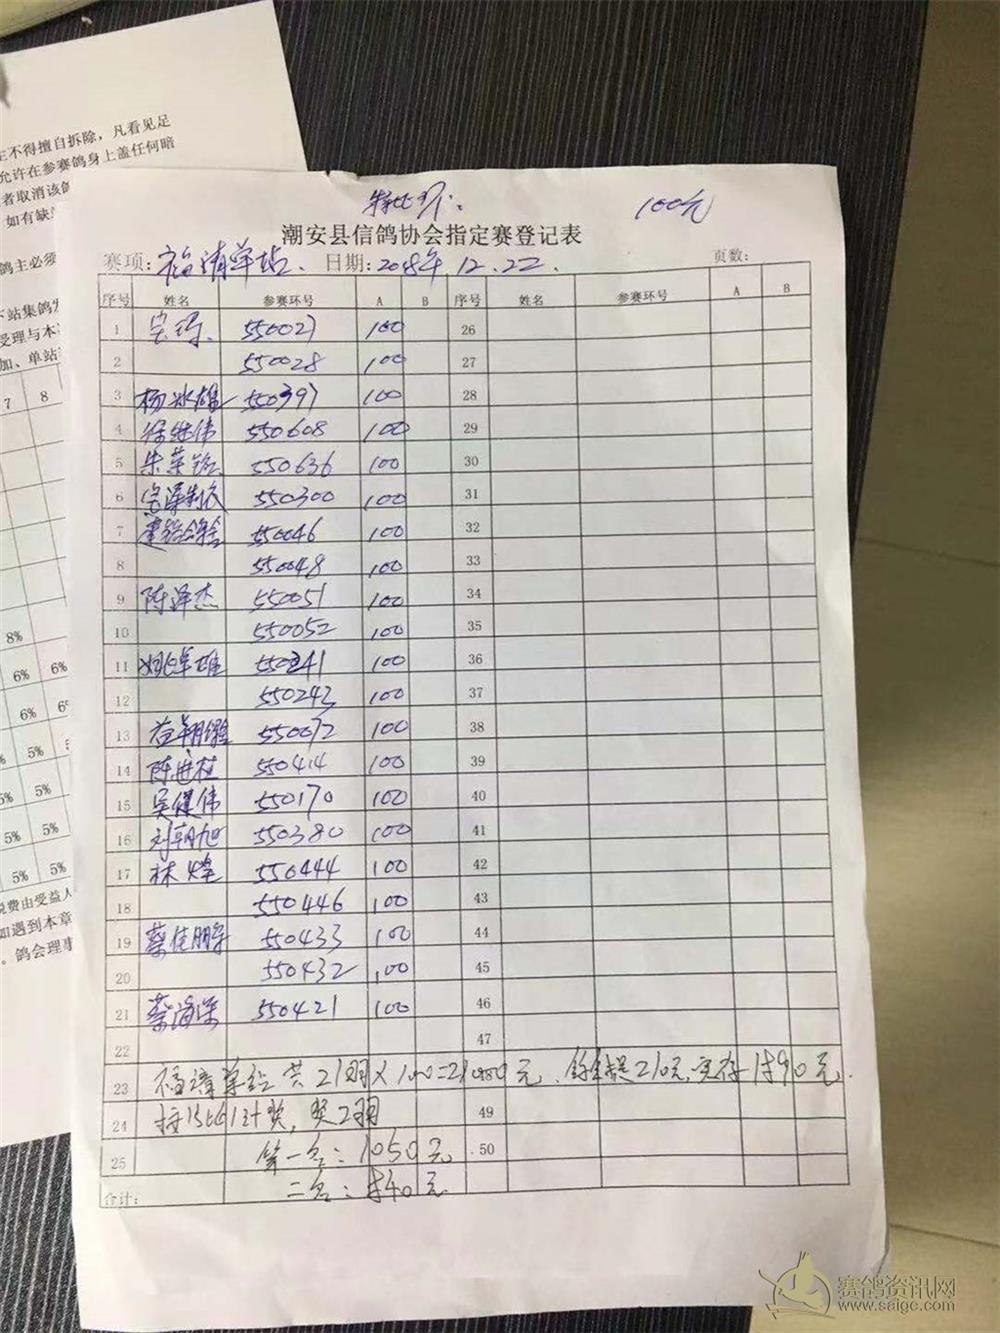 主不得擅自拆除，凡看见足
允许在参赛鸽身上盖任何暗
者取消该
如有缺
鸽主必须
下站集鸽
受理与本
加、单站
7 8
8%
6% 6%
6% 6
5%
5% 5%
5% 5%
5% 5%
税费由受益人
如遇到本章
。鸽会理事
特比环： 100元
潮安县信鸽协会指定赛登记表
赛项：福清单站. 日期：2018年 12.22. 页数：
序号 姓名 参赛环号 A B 序号 姓名 参赛环号 A B
1 550027 100 26
2 550028 100 27
3 杨冰雄 550397 100 28
4 徐继伟 550608 100 29
5 朱荣 550636 100 30
6 550300 100 31
7 550046 100 32
8 550048 100 33
9 陈泽杰 550051 100 34
10 550052 100 35
11 姚泽雄 550241 100 36
12 550243 100 37
13 益翔 550072 100 38
14 陈进 550414 100 39
15 吴健伟 550170 100 40
16 刘朝旭 550380 100 41
17 林烽 550444 100 42
18 550446 100 43
19 蔡佳鹏 550433 100 44
20 550432 100 45
21 蔡海 550421 100 46
22 47
23 福清单站 共21羽×100=2100元. 210元, 实存1890元.
24 按 比例计奖, 奖2羽 49
25 第一名：1050元 50
合计： 二名：840元
赛鸽资讯网
www.saigc.com